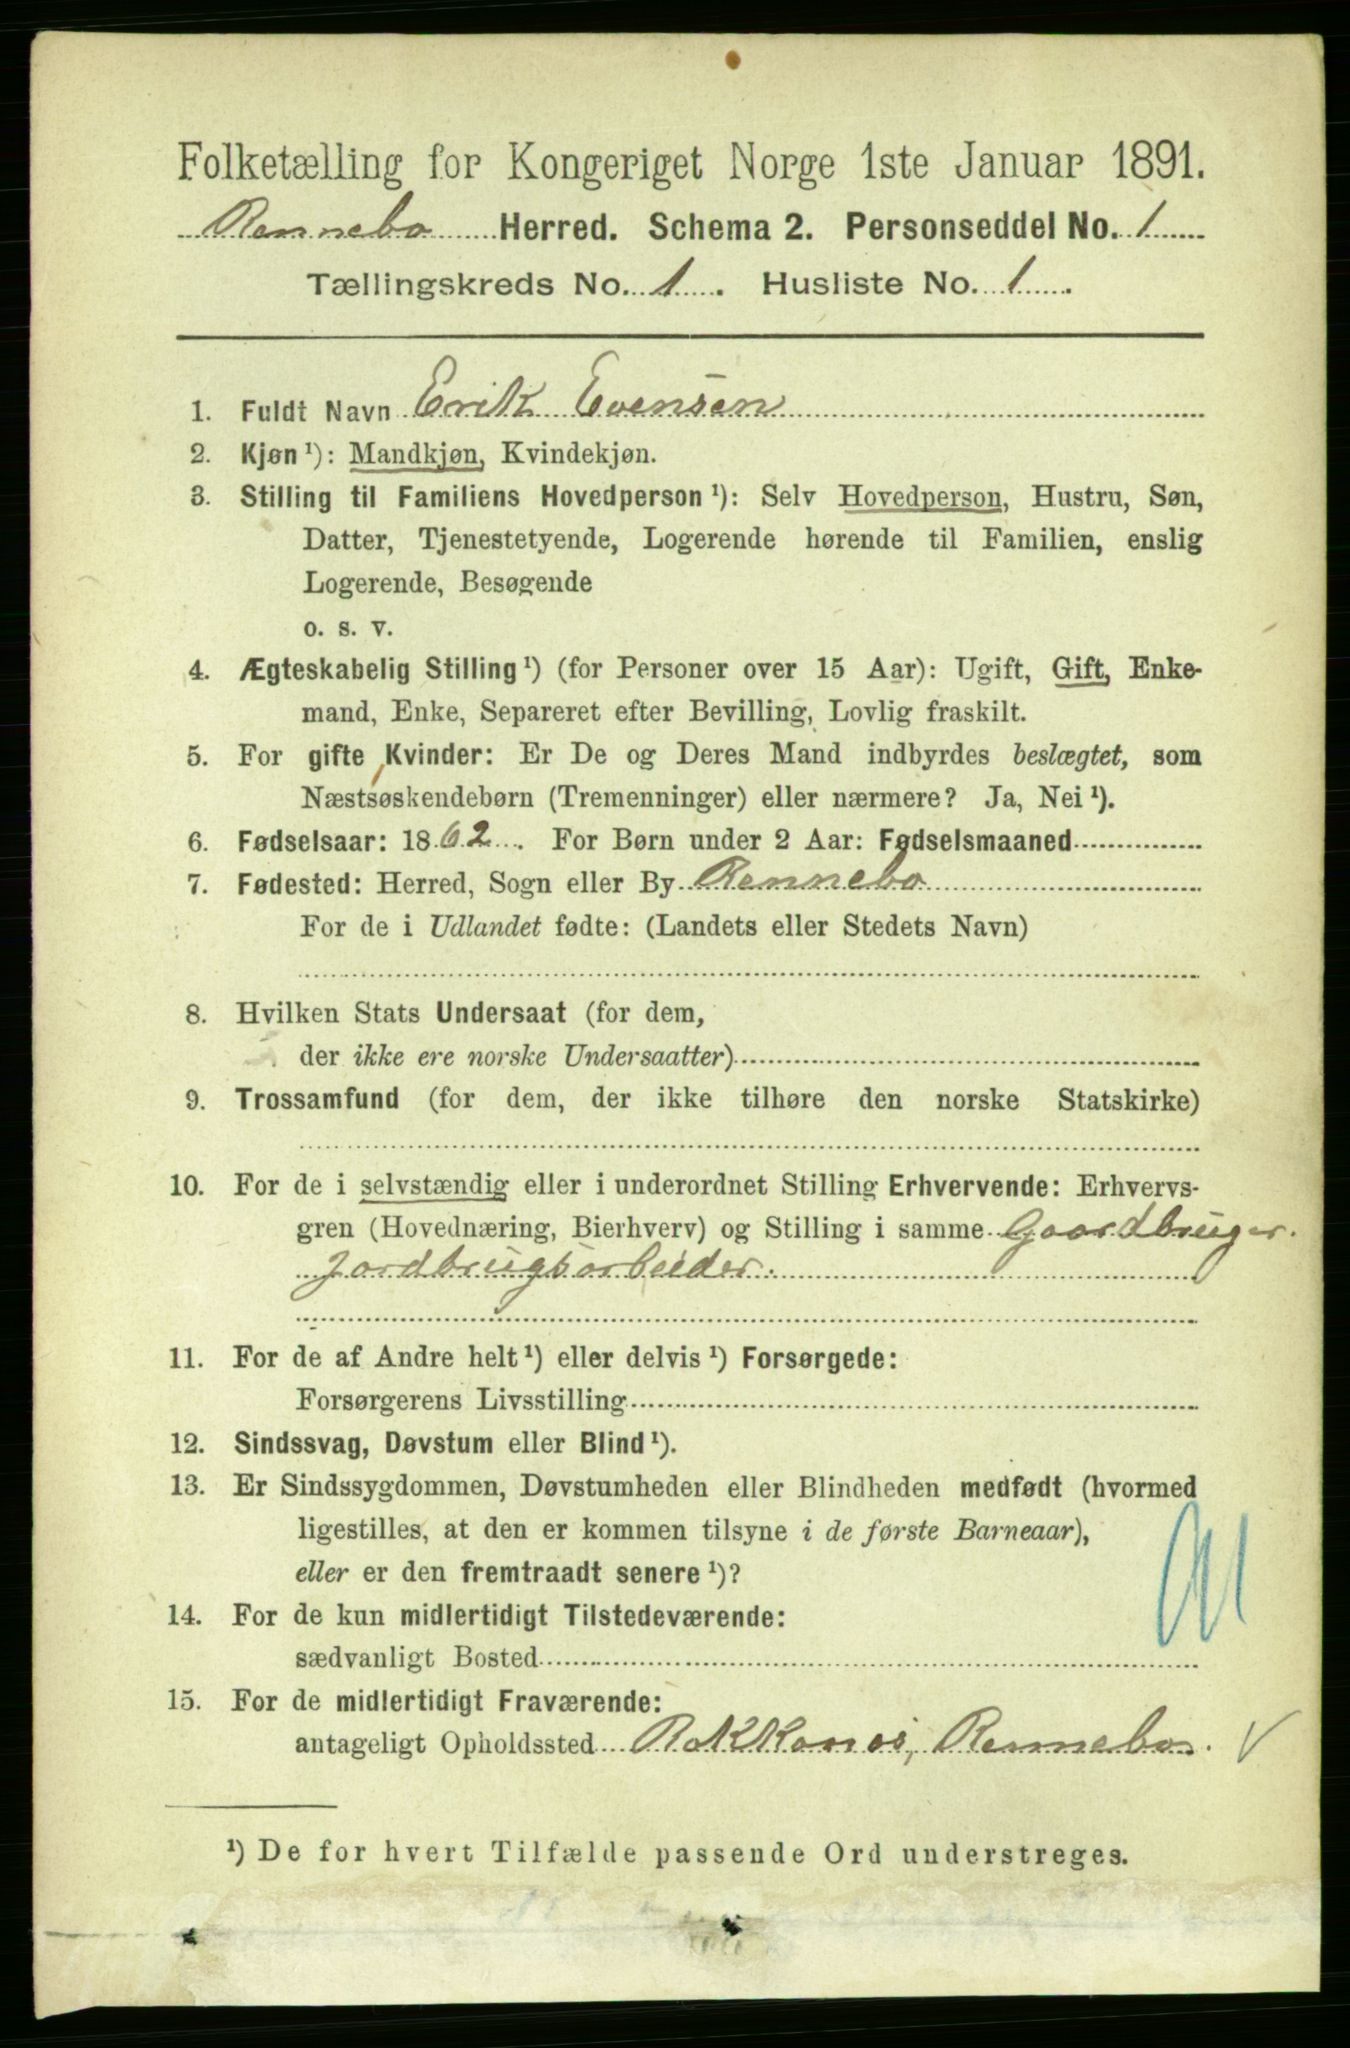 Folketælling for Kongeriget Norge 1ste Januar 1891.
Rennebo Herred. Schema 2. Personseddel No. 1
Tællingskreds No. 1. Husliste No. 1.
1. Fuldt Navn Erik Evensen
2. Kjøn ¹): Mandkjøn, Kvindekjøn.
3. Stilling til Familiens Hovedperson ¹): Selv Hovedperson, Hustru, Søn,
Datter, Tjenestetyende, Logerende hørende til Familien, enslig
Logerende, Besøgende
o. s. v.
4. Ægteskabelig Stilling ¹) (for Personer over 15 Aar): Ugift, Gift, Enke-
mand, Enke, Separeret efter Bevilling, Lovlig fraskilt.
5. For gifte Kvinder: Er De og Deres Mand indbyrdes beslægtet, som
Næstsøskendebørn (Tremenninger) eller nærmere? Ja, Nei ¹).
6. Fødselsaar: 1862. For Børn under 2 Aar: Fødselsmaaned
7. Fødested: Herred, Sogn eller By Rennebo
For de i Udlandet fødte: (Landets eller Stedets Navn)
8. Hvilken Stats Undersaat (for dem,
der ikke ere norske Undersaatter)
9. Trossamfund (for dem, der ikke tilhøre den norske Statskirke)
10. For de i selvstændig eller i underordnet Stilling Erhvervende: Erhvervs-
gren (Hovednæring, Bierhverv) og Stilling i samme Gaardbruger.
Jordbrugsarbeider.
11. For de af Andre helt ¹) eller delvis ¹) Forsørgede:
Forsørgerens Livsstilling
12. Sindssvag, Døvstum eller Blind ¹).
13. Er Sindssygdommen, Døvstumheden eller Blindheden medfødt (hvormed
ligestilles, at den er kommen tilsyne i de første Barneaar),
eller er den fremtraadt senere ¹)?
14. For de kun midlertidigt Tilstedeværende:
sædvanligt Bosted
15. For de midlertidigt Fraværende:
antageligt Opholdssted Rennebo.
¹) De for hvert Tilfælde passende Ord understreges.